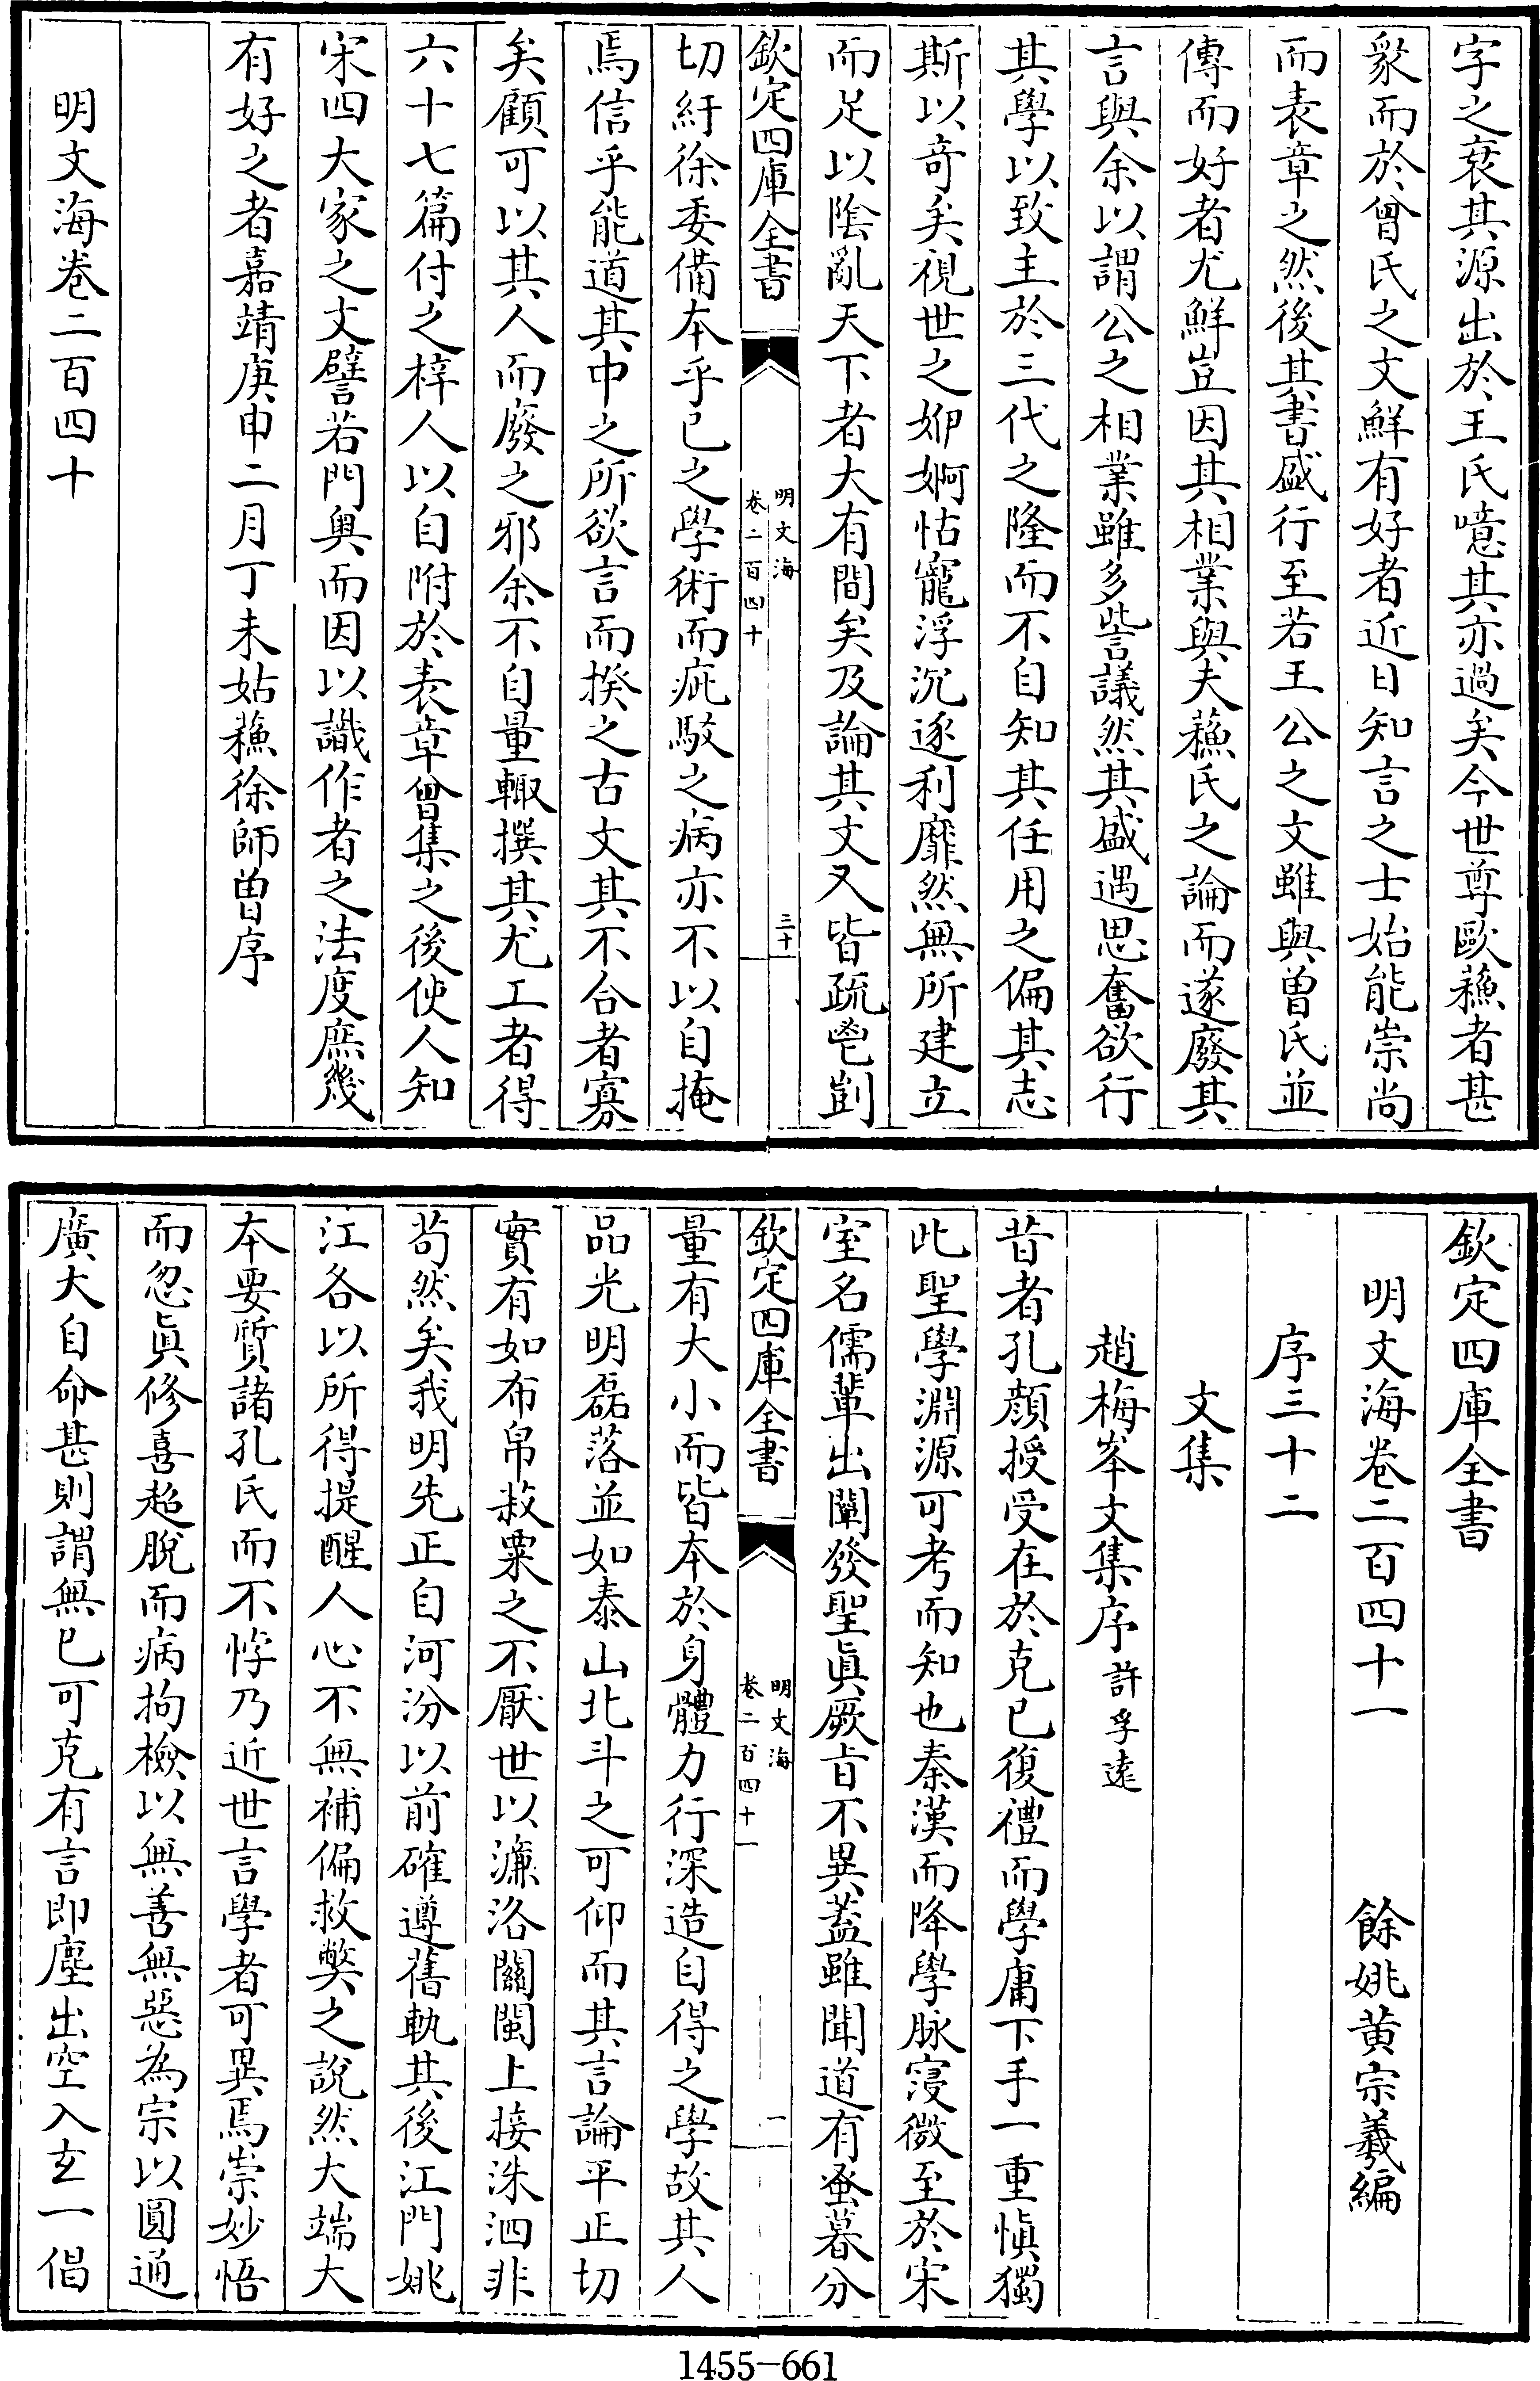 字之衰其源出於王氏噫其亦過矣今世尊歐蘓者甚
衆而於曾氏之文鮮有好者近日知言之士始能崇尚
而表章之然後其書盛行至若王公之文雖與曾氏並
傳而好者尤鮮豈因其相業與夫蘓氏之論而遂廢其
言與余以謂公之相業雖多訾議然其盛遇思奮欲行
其學以致主於三代之隆而不自知其任用之偏其志
斯以竒矣視世之媕婀怙寵浮沉逐利靡然無所建立
而足以隂亂天下者大有間矣及論其文又皆疏鬯剴
欽定四庫全書
明文海
卷二百四十
三十
切紆徐委備本乎已之學術而疵駁之病亦不以自掩
焉信乎能道其中之所欲言而揆之古文其不合者寡
矣顧可以其人而廢之邪余不自量輙撰其尤工者得
六十七篇付之梓人以自附於表章曾集之後使人知
宋四大家之文譬若門奥而因以識作者之法度庶幾
有好之者嘉靖庚申二月丁未姑蘓徐師曾序
明文海卷二百四十
欽定四庫全書
明文海卷二百四十一 餘姚黄宗羲編
序三十二
文集
趙梅峯文集序 許孚逺
昔者孔顔授受在於克已復禮而學庸下手一重慎獨
此聖學淵源可考而知也秦漢而降學脉寖微至於宋
室名儒輩出闡發聖眞厥㫖不異蓋雖聞道有蚤暮分
欽定四庫全書
明文海
卷二百四十一
一
量有大小而皆本於身體力行深造自得之學故其人
品光明磊落並如泰山北斗之可仰而其言論平正切
實有如布帛菽粟之不厭世以濂洛關閩上接洙泗非
茍然矣我明先正自河汾以前確遵舊軌其後江門姚
江各以所得提醒人心不無補偏救獘之說然大端大
本要質諸孔氏而不悖乃近世言學者可異焉崇妙悟
而忽眞修喜超脫而病拘檢以無善無惡為宗以圓通
廣大自命甚則謂無已可克有言即塵出空入玄一倡
1455-661